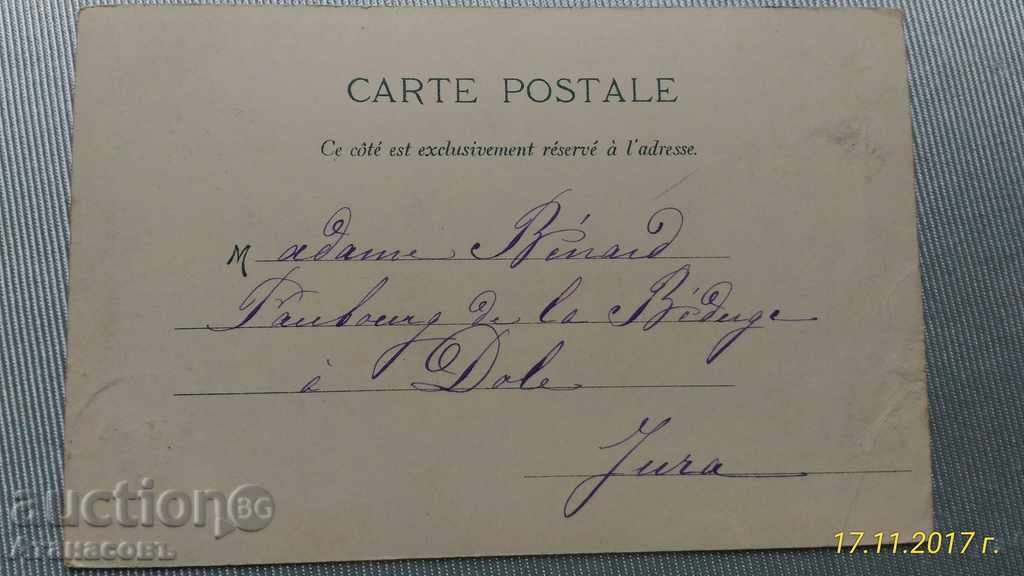 CARTE POSTALE
Ce côté est exclusivement réservé à l'adresse.
Madame Bénard
Faubourg de la Béduge
à Dole
Jura
auctionBG
Атанасовъ
17.11.2017 г.